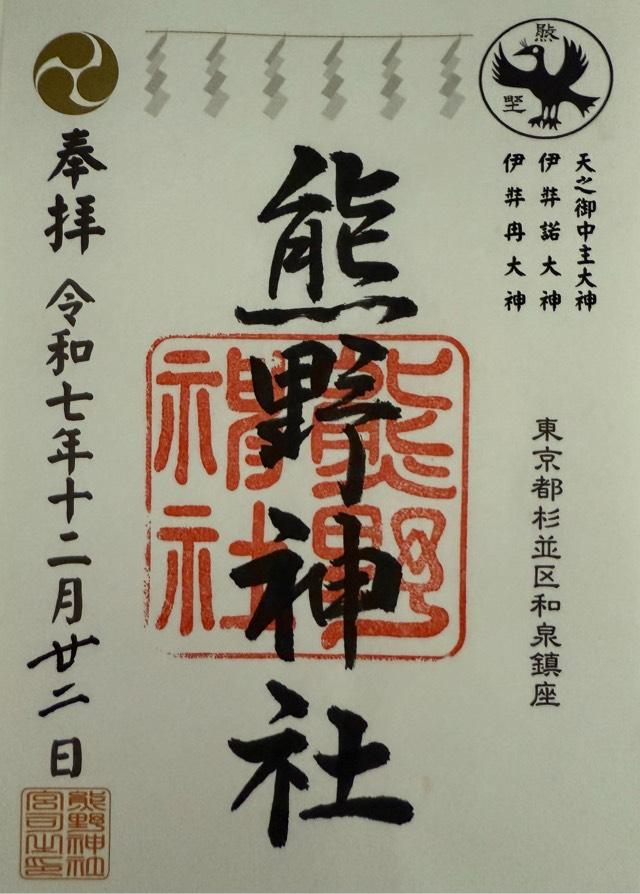 熊
野
天之御中主大神
伊弉諾大神
伊弉冉大神
東京都杉並区和泉鎮座
熊野神社
熊野
神社
奉拝 令和七年十二月廿二日
熊野神社
宮司之印